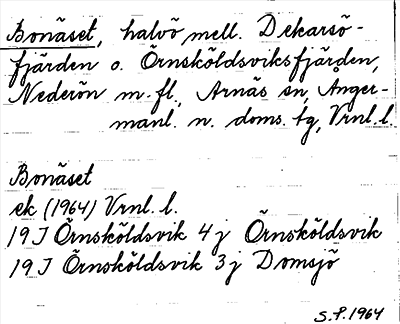 Bonäset, halvö mell. Dekarsö-
fjärden o. Örnsköldsviksfjärden,
Nederön m. fl., Arnäs sn, Ånger-
manl. n. doms. tg, Vrnl. l.
Bonäset
ek (1964) Vrnl. l.
19J Örnsköldsvik 4j Örnsköldsvik
19J Örnsköldsvik 3j Domsjö
S.P. 1964